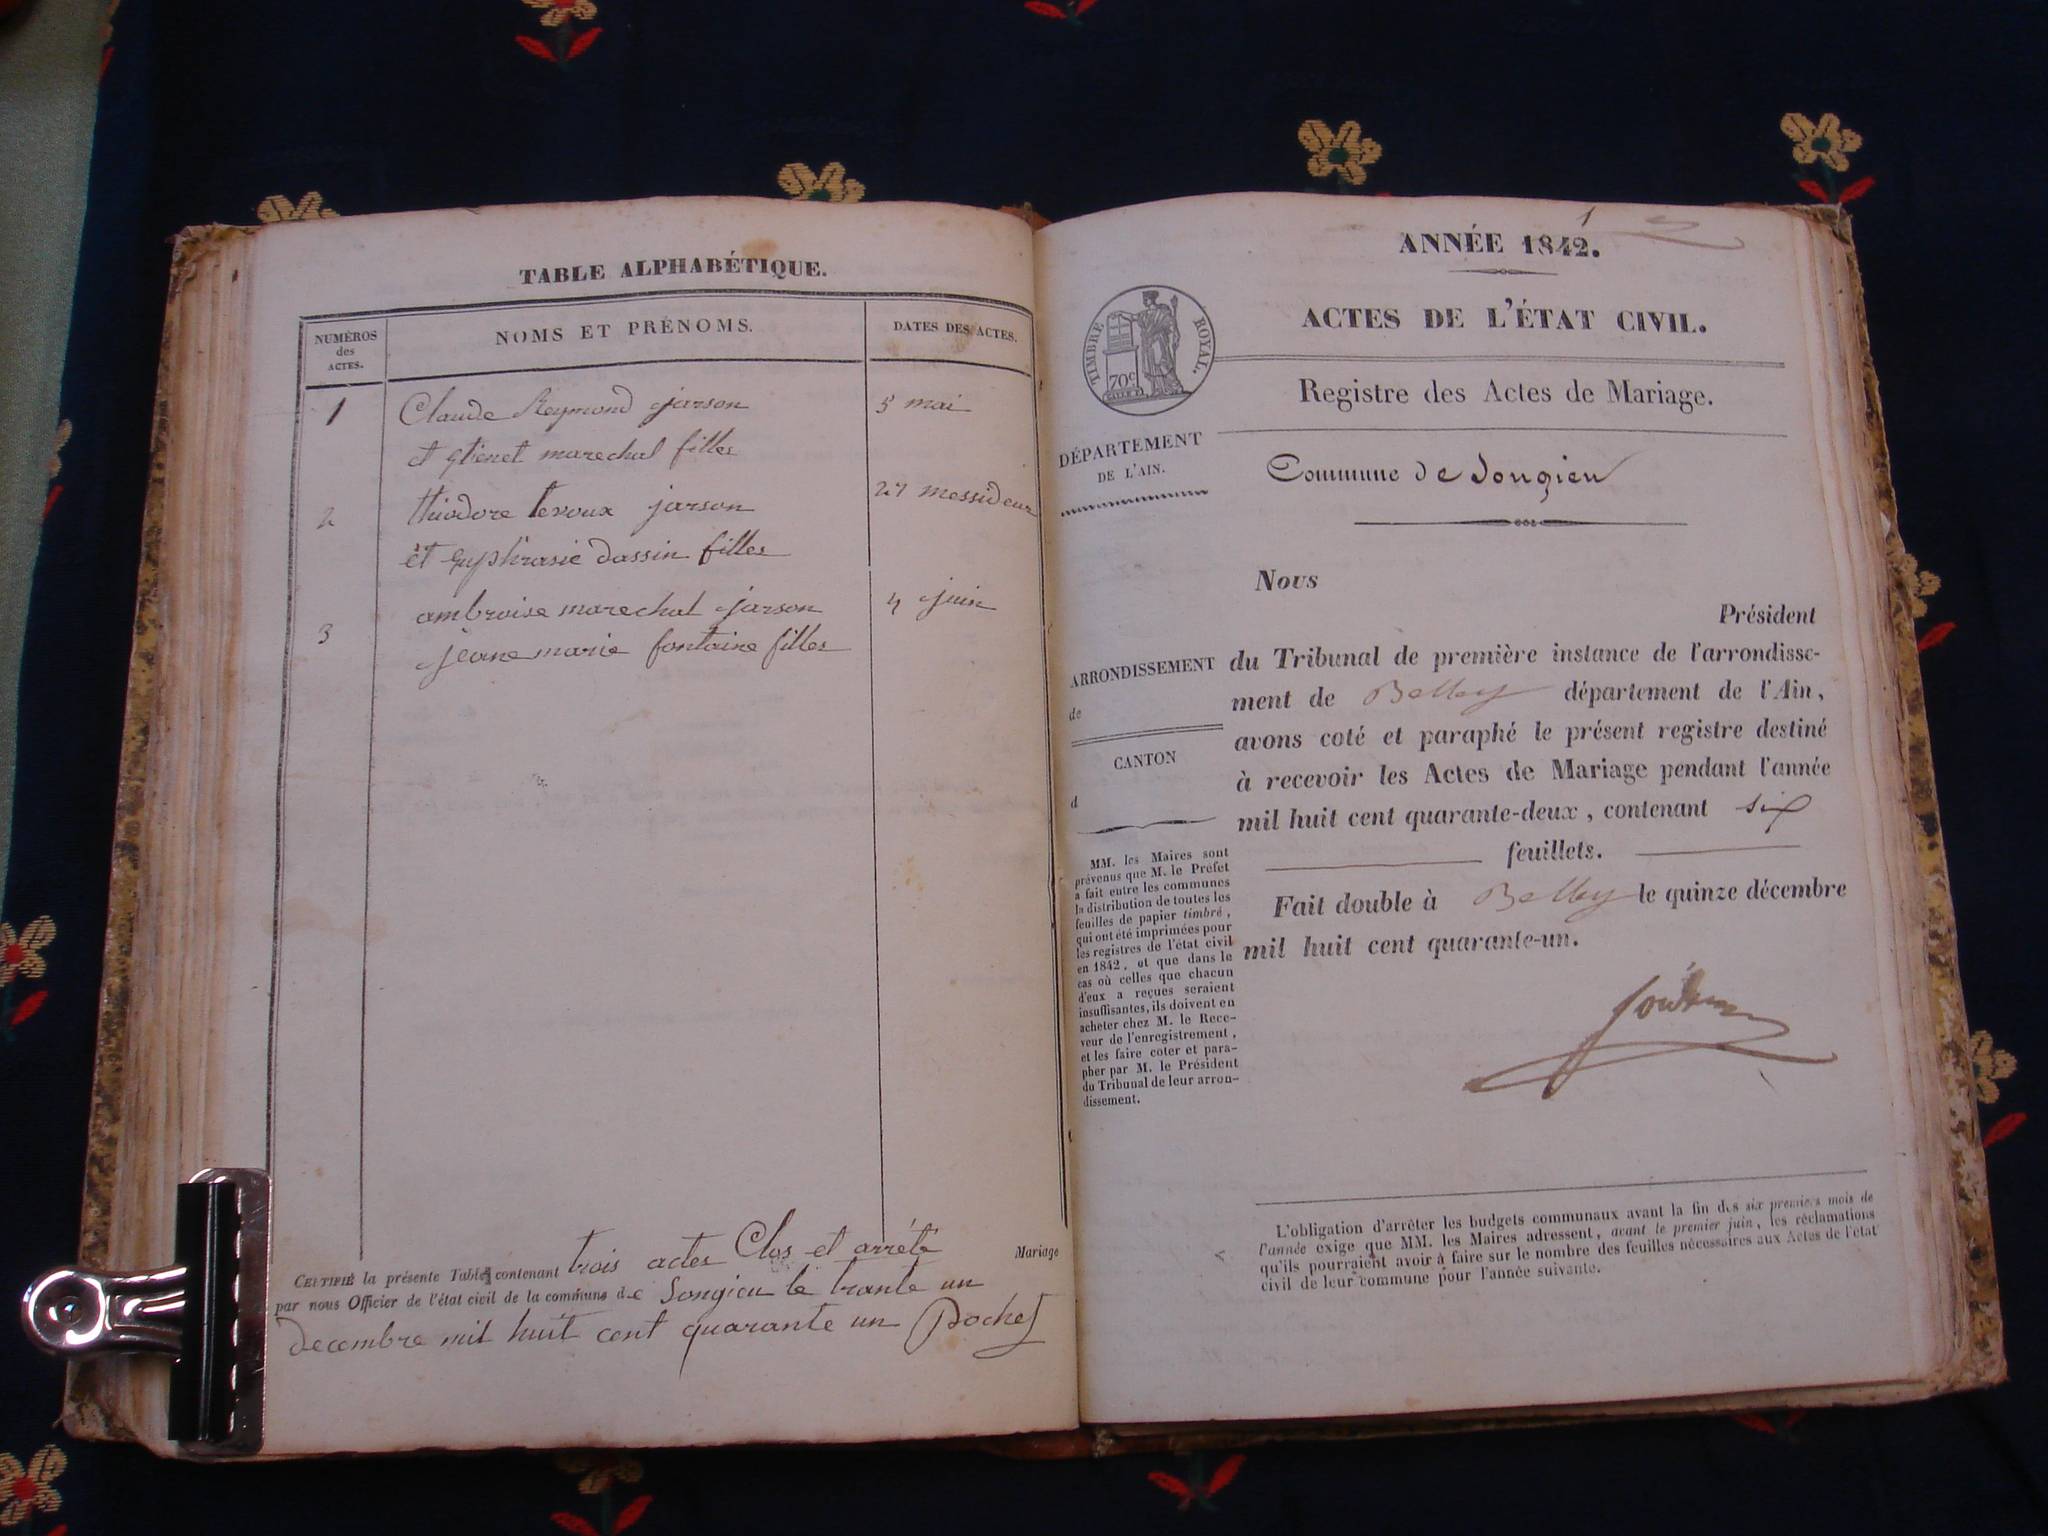 TABLE ALPHABÉTIQUE.
NUMÉROS
des
ACTES.
NOMS ET PRÉNOMS.
DATES DES ACTES.
1 Claude Reymond jarson 5 mai
et marechal filles
2 thiodore jarson 27
et dassin filles
3 ambroise marechal jarson 4 juin
jeane marie fontaine filles
Mariage
CERTIFIÉ la présente Table contenant trois actes Clos et arrété
par nous Officier de l'état civil de la commune de Songieu le trante un
decembre mil huit cent quarante un Pochet
1
ANNÉE 1842.
ACTES DE L'ÉTAT CIVIL.
TIMBRE ROYAL.
70c
Registre des Actes de Mariage.
DÉPARTEMENT
DE L'AIN.
Commune de Songieu
Nous
Président
ARRONDISSEMENT
de
CANTON
d
du Tribunal de première instance de l'arrondisse-
ment de Belley département de l'Ain,
avons coté et paraphé le présent registre destiné
à recevoir les Actes de Mariage pendant l'année
mil huit cent quarante-deux, contenant six
feuillets.
Fait double à Belley le quinze décembre
mil huit cent quarante-un.
MM. les Maires sont
prévenus que M. le Préfet
a fait entre les communes
la distribution de toutes les
feuilles de papier timbré,
qui ont été imprimées pour
les registres de l'état civil
en 1842, et que dans le
cas où celles que chacun
d'eux a reçues seraient
insuffisantes, ils doivent en
acheter chez M. le Rece-
veur de l'enregistrement,
et les faire coter et para-
pher par M. le Président
du Tribunal de leur arron-
dissement.
L'obligation d'arrêter les budgets communaux avant la fin des six premiers mois de
l'année exige que MM. les Maires adressent, avant le premier juin, les réclamations
qu'ils pourraient avoir à faire sur le nombre des feuilles nécessaires aux Actes de l'état
civil de leur commune pour l'année suivante.